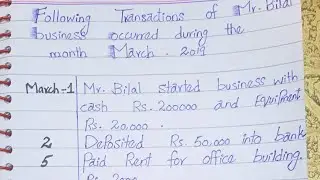 Following Transactions of Mr. Bilal
business occurred during the
month March . 2019
March-1 Mr. Bilal started business with
cash Rs. 200000 and Equipment
Rs. 20,000 .
2 Deposited Rs. 50,000 into bank
5 Paid Rent for office building.
Rs. 2000